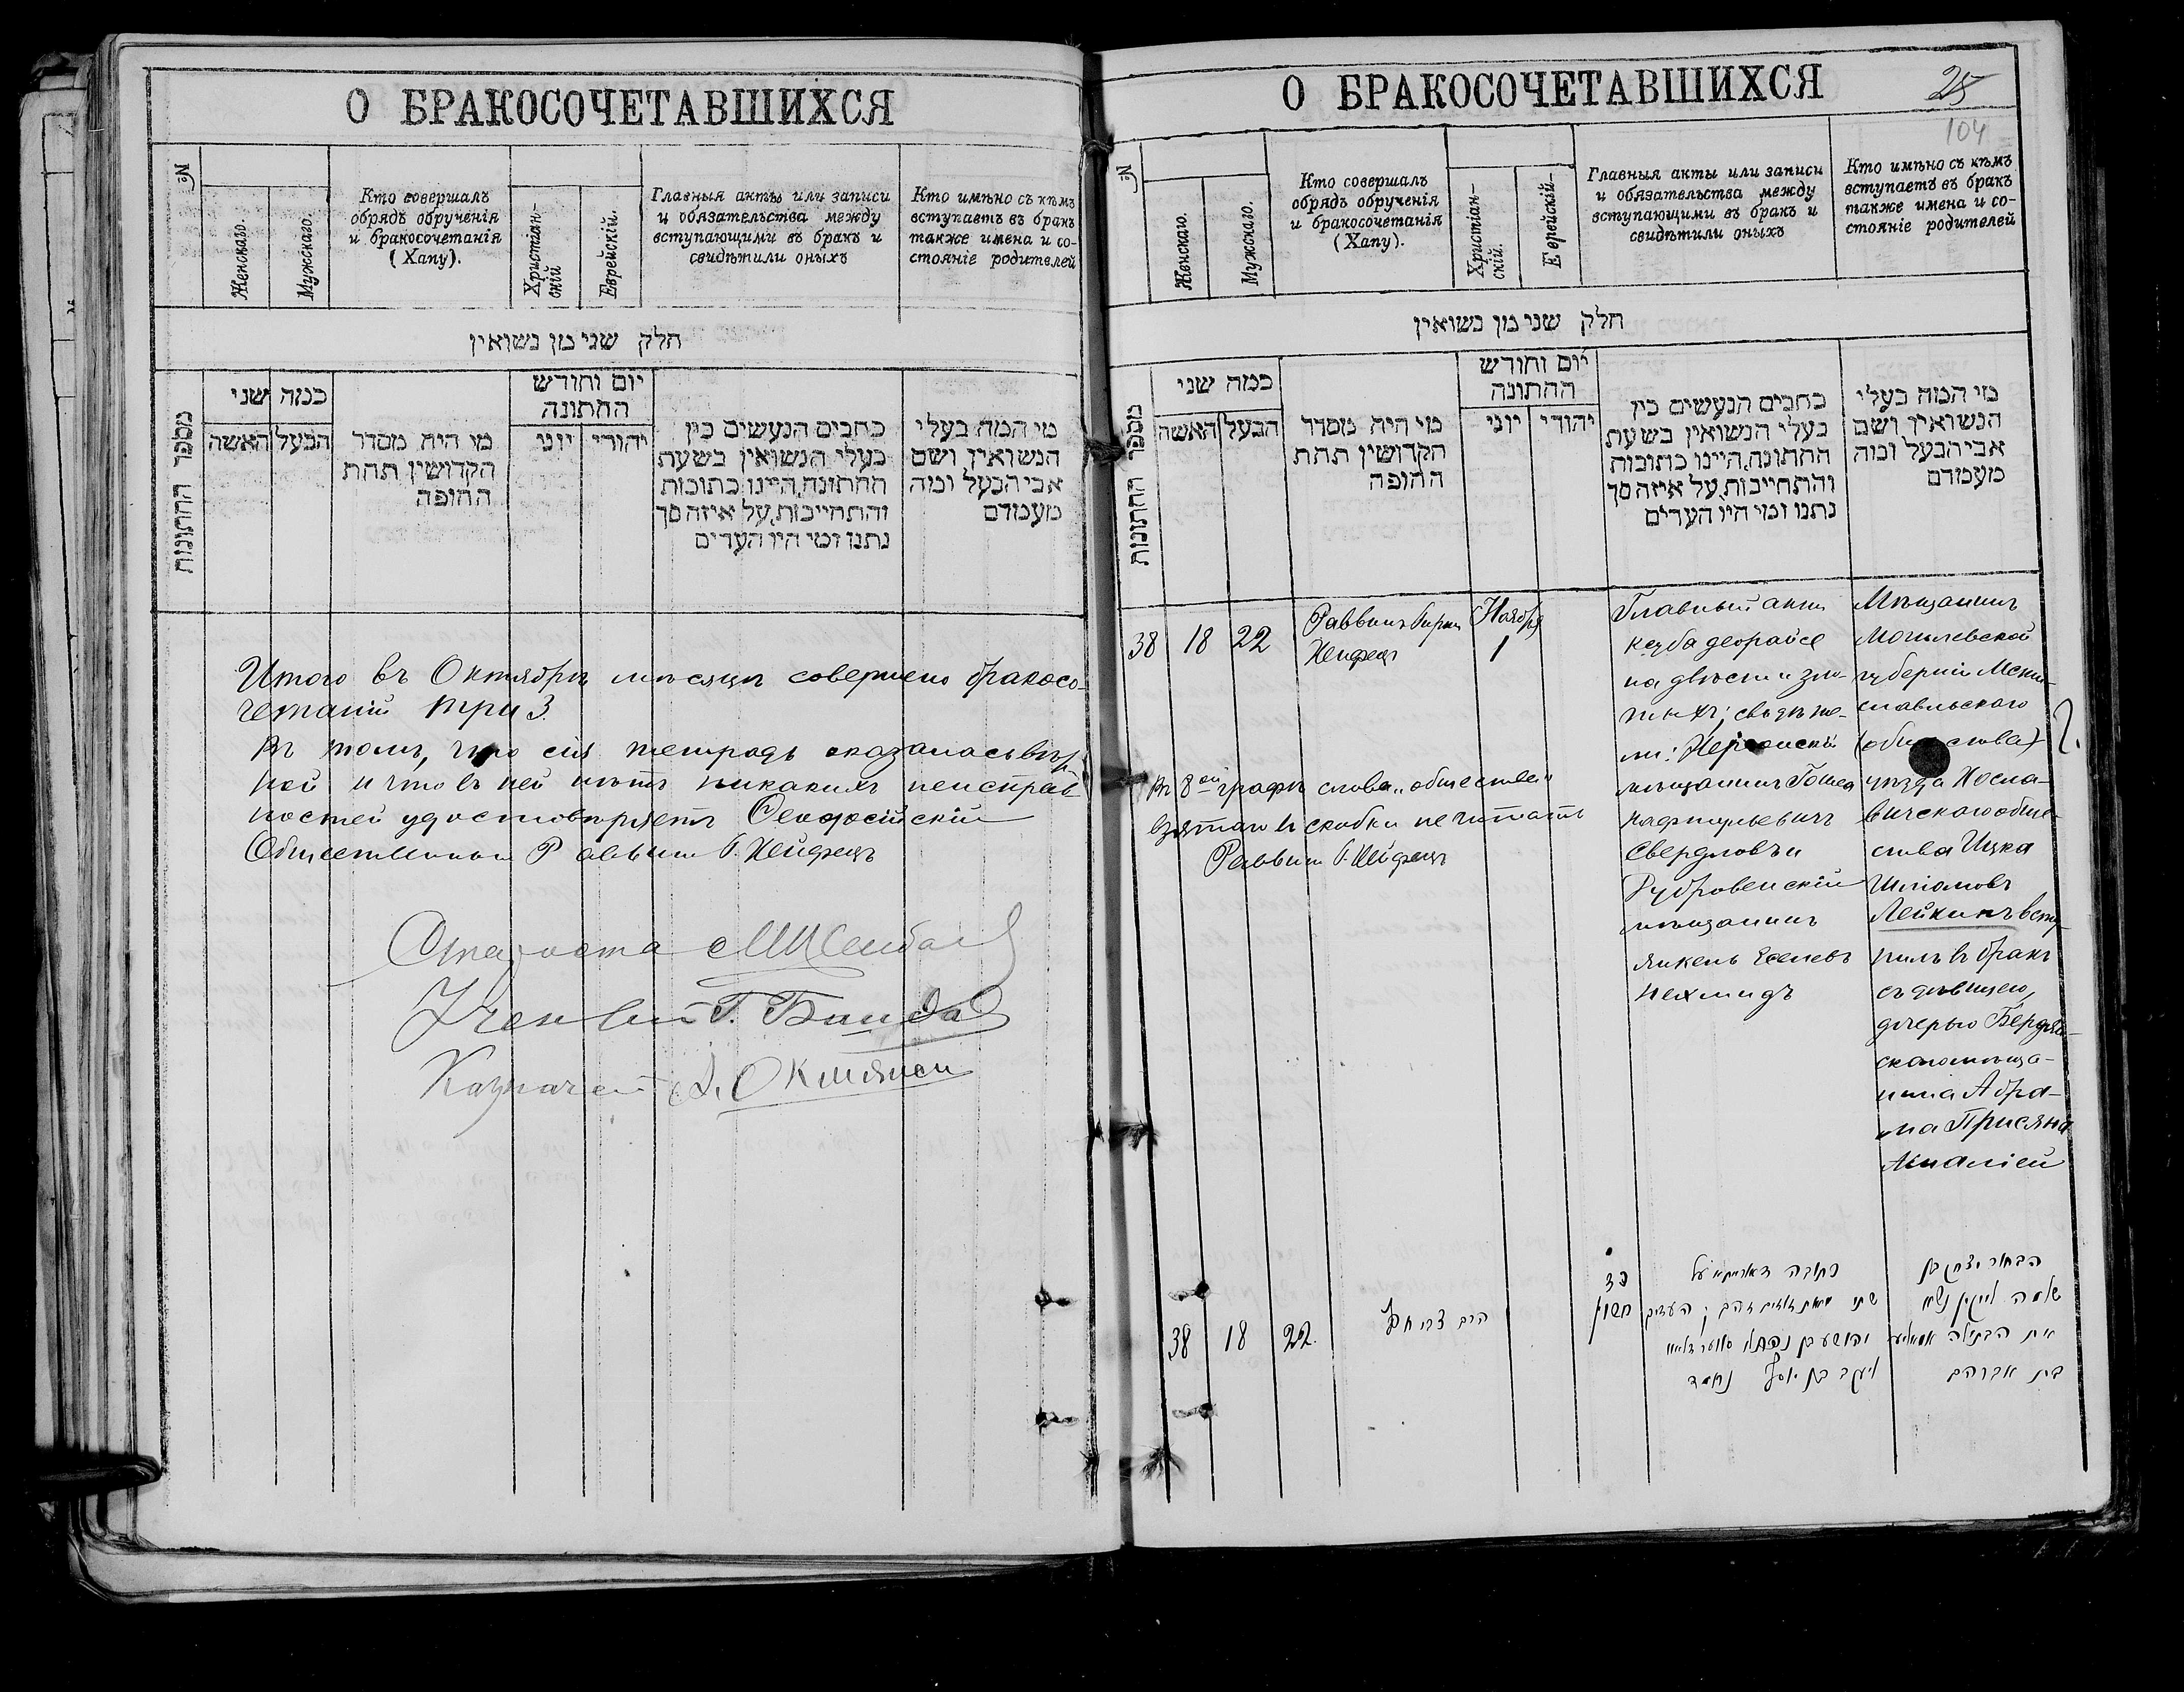 О БРАКОСОЧЕТАВШИХСЯ
№
Женскаго.
Мужскаго.
Кто совершалъ
обрядъ обрученія
и бракосочетанія
(Хапу).
Христіан-
скій
Еврейскій.
Главныя акты или записи
и обязательства между
вступающими въ бракъ и
свидѣтили оныхъ
Кто имѣно съ кѣмъ
вступаетъ въ бракъ
также имена и со-
стояніе родителей
חלק שני מן נשואין
מספר החתונות
כמה שני
האשה
הבעל
מי היה מסדר
הקדושין תחת
החופה
יום וחודש
החתונה
יוני
יהודי
כתבים הנעשים בין
בעלי הנשואין בשעת
החתונה,היינו כתובות
והתחייבות,על איזה סך
נתנו ומי היו העדים
מי המה בעלי
הנשואין ושם
אבי הבעל ומה
מעמדם
Итого въ Октябрѣ мѣсяцѣ совершено бракосо-
четаній три 3.
Въ томъ, что сія тетрадь оказалась вѣр-
ной и что въ ней нѣтъ никакихъ неисправ-
ностей удостовѣряетъ Ѳеодосійскій
Общественный Раввинъ Г. Хейфецъ
Староста
Ученый Г.
Казначей
О БРАКОСОЧЕТАВШИХСЯ
25
104
№
Женскаго.
Мужскаго.
Кто совершалъ
обрядъ обрученія
и бракосочетанія
(Хапу).
Христіан-
скій.
Еврейскій-
Главныя акты или записи
и обязательства между
вступающими въ бракъ и
свидѣтили оныхъ
Кто имѣно съ кѣмъ
вступаетъ въ бракъ
также имена и со-
стояніе родителей
חלק שני מן נשואין
מספר החתונות
כמה שני
האשה
הבעל
מי היה מסדר
הקדושין תחת
החופה
יום וחודש
החתונה
יוני
יהודי
כתבים הנעשים בין
בעלי הנשואין בשעת
החתונה,היינו כתובות
והתחייבות,על איזה סך
נתנו ומי היו העדים
מי המה בעלי
הנשואין ושם
אבי הבעל ומה
מעמדם
38 18 22
Раввинъ Гирш
Хейфецъ
Ноября
1
Главный актъ
ксуба деорайсе
на двѣсти зло-
тыхъ; свидѣте-
ли: Херсонскій
мѣщанинъ
Нафтульевичъ
Свердловъ и
Дубровенскій
мѣщанинъ
Янкель Еселевъ
Нехмидъ
Мѣщанинъ
Могилевской
губерніи Мсти-
славльскаго
(общества)
уѣзда Хосла-
вичскаго обще-
ства Ицка
Шліомовъ
Лейкинъ всту-
пилъ въ бракъ
съ дѣвицею,
дочерью Бердян-
скаго мѣща-
нина Абра-
ма
Амаліей
Въ 8ой графѣ слова „общества"
взятаго въ скобки не читать
Раввинъ Г. Хейфецъ
38 18 22.
חשון
כתובה דאורייתא על
יעקב בן יוסף נחמד
הבחור יצחק בן
שלמה לייקין נשא
את הבתולה אמאליע
בית אברהם